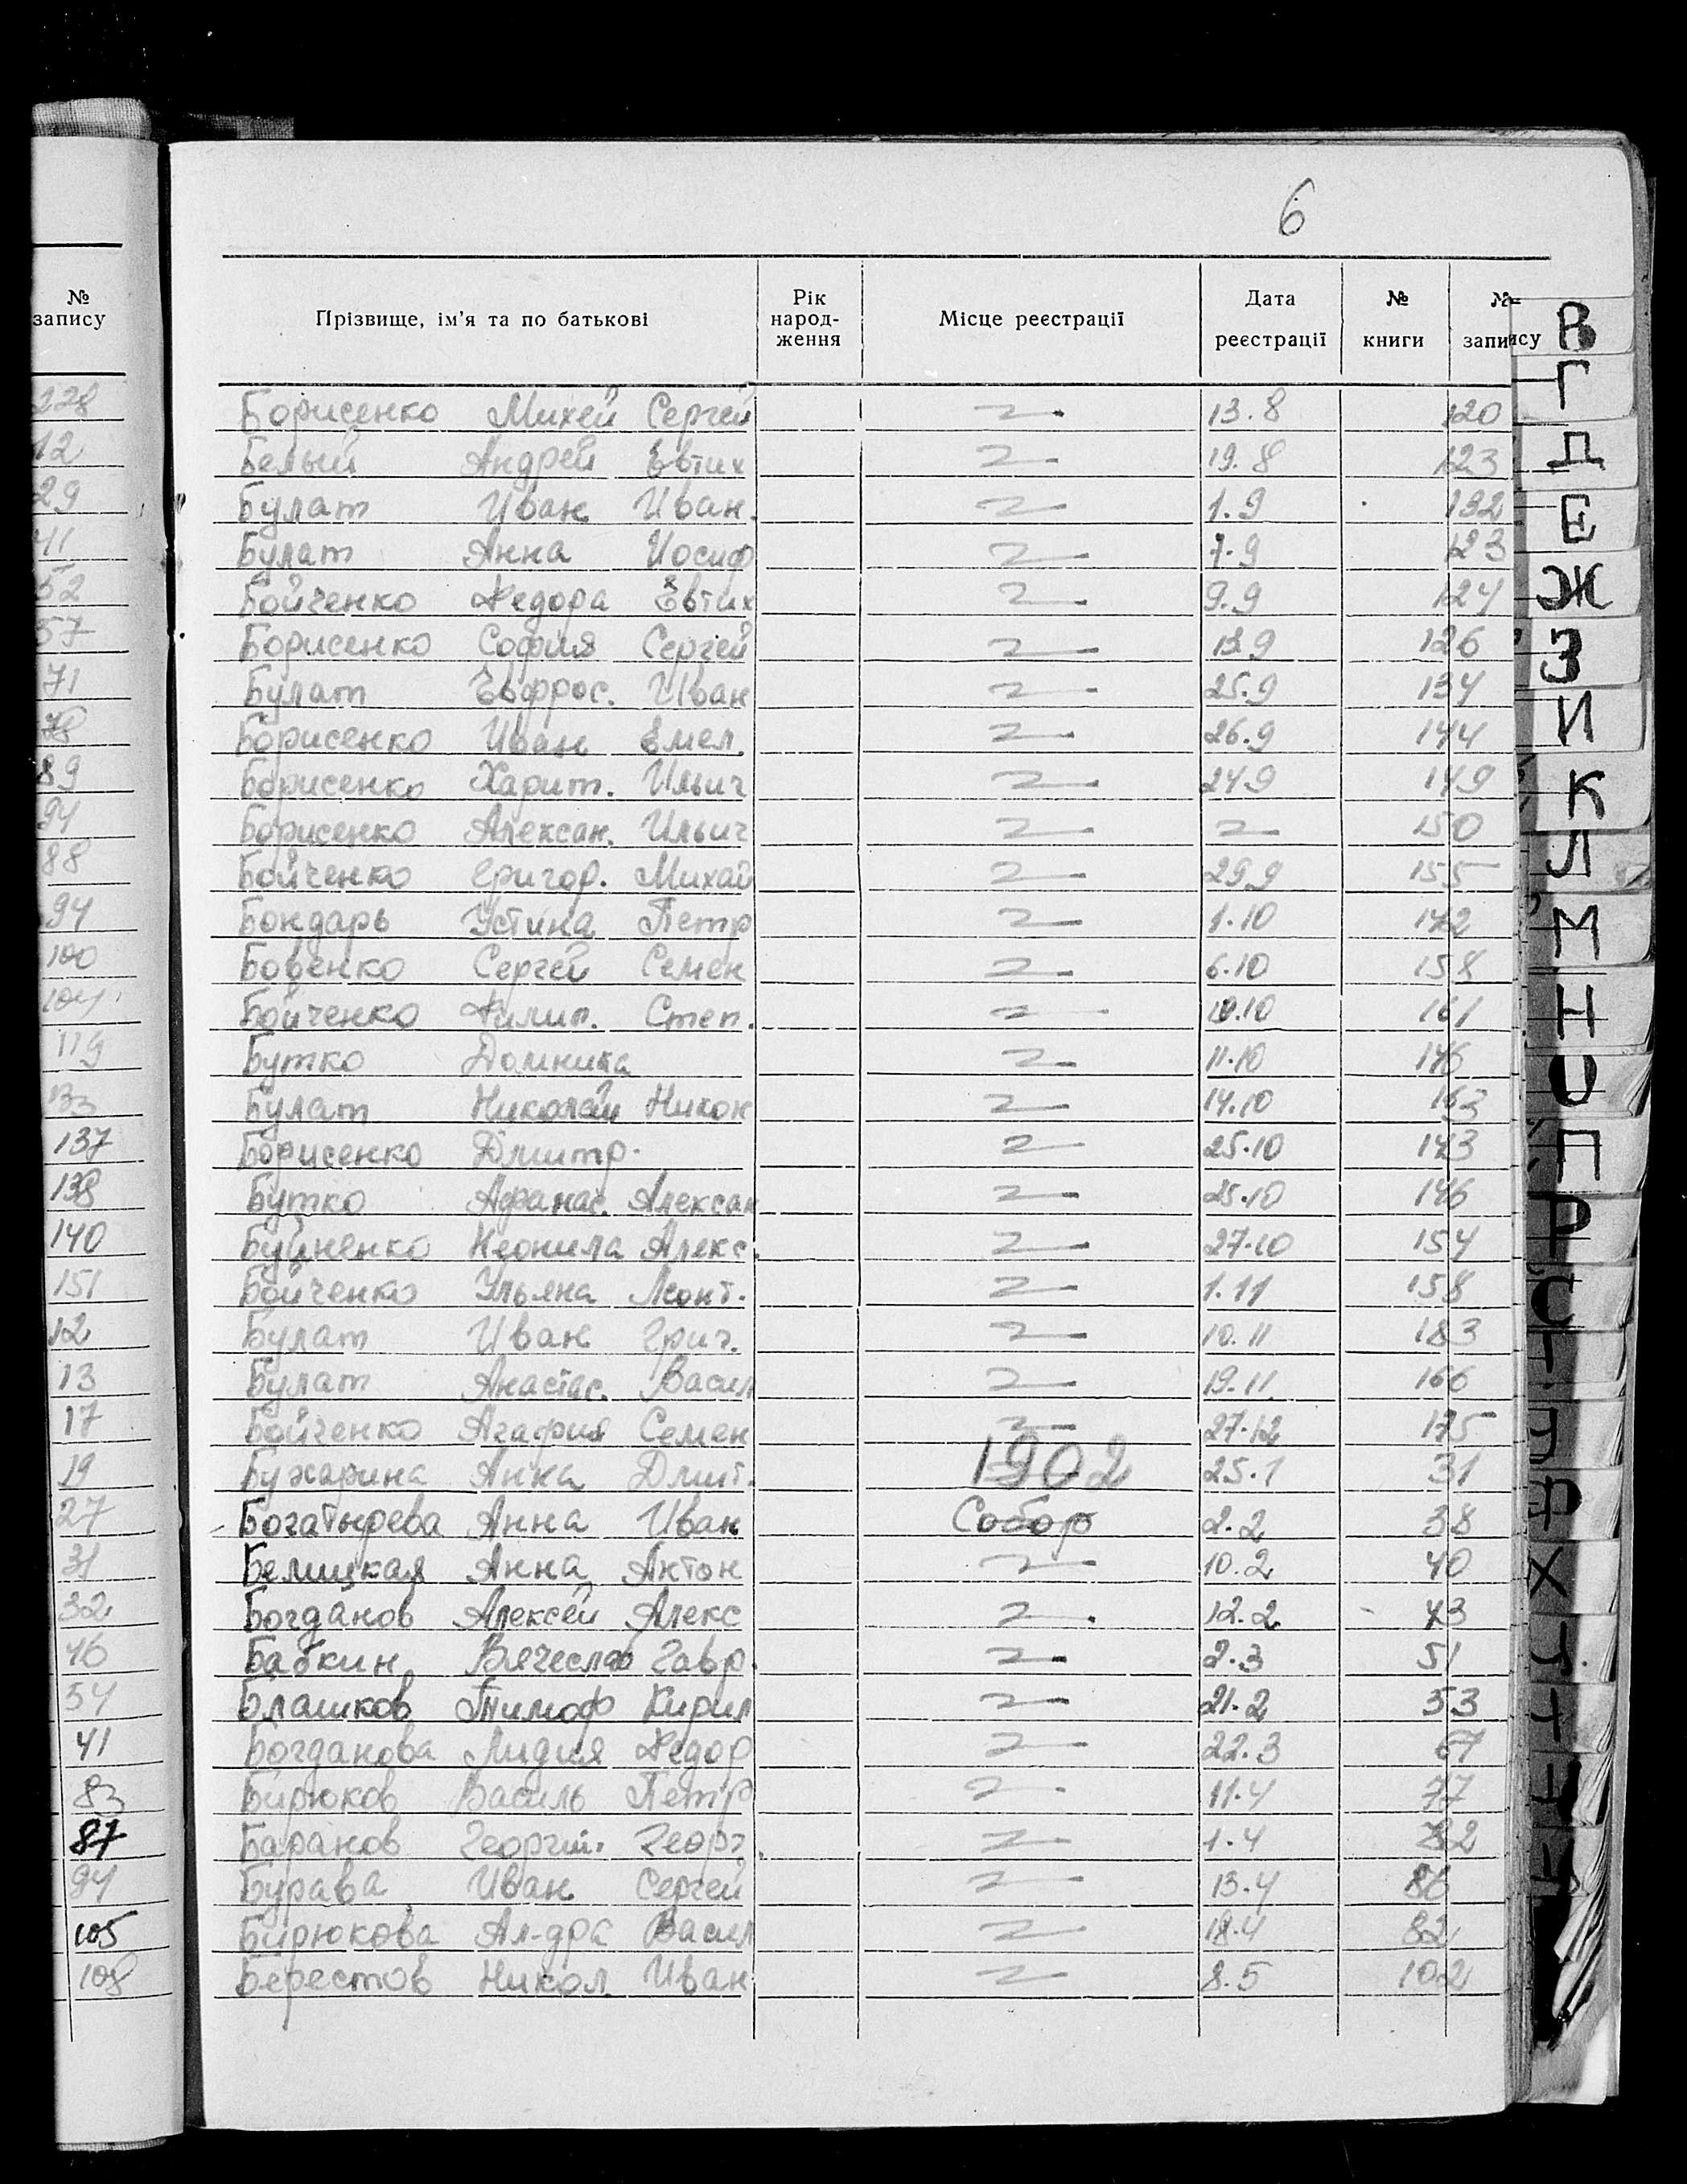 6
№ запису
Прізвище, ім'я та по батькові Рік народ-ження Місце реєстрації Дата реєстрації № книги № запису
228 Борисенко Михей Сергей 13.8 120
12 Белый Андрей Евтих 19.8 123
29 Булат Иван Иван. 1.9 132
41 Булат Анна Иосиф 7.9 123
52 Бойченко Федора Евтих 9.9 124
57 Борисенко София Сергей 13.9 126
71 Булат Евфрос. Иван 25.9 134
78 Борисенко Иван Емел. 26.9 144
89 Борисенко Харит. Ильич 24.9 149
94 Борисенко Алексан. Ильич 150
88 Бойченко Григор. Михай 29.9 155
94 Бондарь Устина Петр 1.10 142
100 Бовенко Сергей Семен 6.10 158
104 Бойченко Филип. Степ. 10.10 161
119 Бутко Домника 11.10 146
133 Булат Николай Никон 14.10 163
137 Борисенко Дмитр. 25.10 143
138 Бутко Афанас. Алексан 25.10 146
140 Буйненко Неонила Алекс. 27.10 154
151 Бойченко Ульяна Леонт. 1.11 158
12 Булат Иван Григ. 10.11 183
13 Булат Анастас. Васил 19.11 166
17 Бойченко Агафия Семен 27.12 175
1902
19 Бухарина Анна Дмит. 25.1 31
27 Богатырева Анна Иван Собор 2.2 38
31 Белицкая Анна Антон 10.2 40
32 Богданов Алексей Алекс 12.2 43
46 Бабкин Вячеслав Гавр. 2.3 51
54 Блашков Тимоф Кирил 21.2 53
41 Богданова Лидия Федор 22.3 67
83 Бирюков Василь Петр 11.4 77
87 Баранов Георгий Георг. 1.4
94 Бурава Иван Сергей 13.4 86
105 Бирюкова Ал-дра Васил 18.4 82
108 Берестов Никол Иван 8.5 102
В
Г
Д
Е
Ж
З
И
К
Л
М
Н
О
П
Р
С
Т
Х